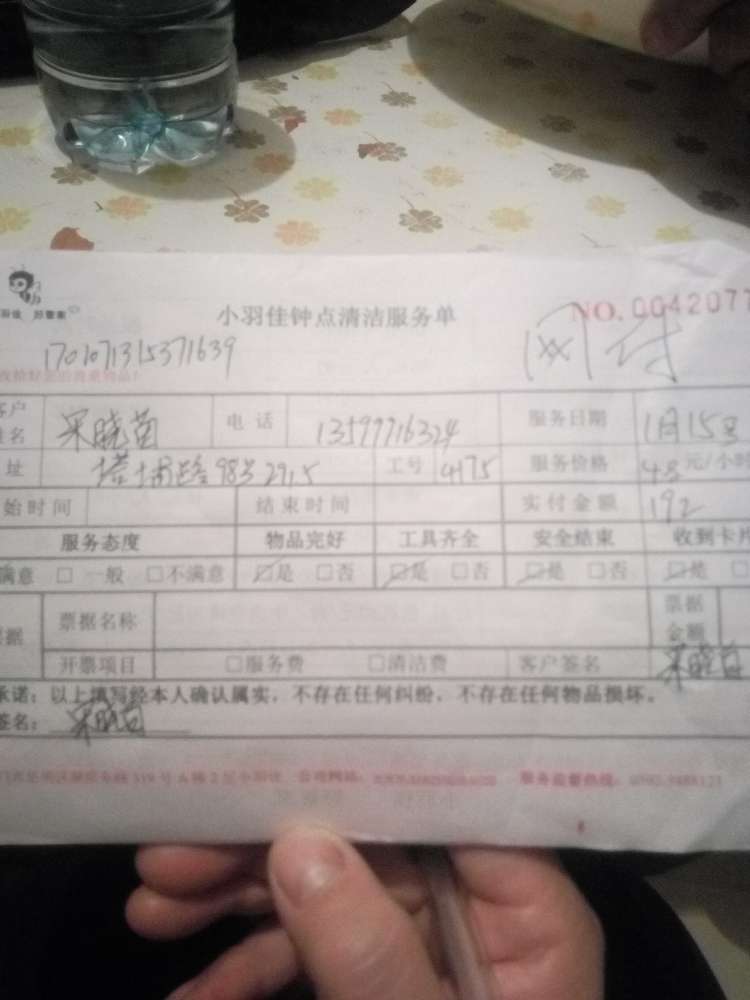 小羽佳钟点清洁服务单
NO. 0042077
1701071315371639
网付
客户姓名 宋晓茵 电话 13599716324 服务日期 1月15号
址 塔埔路98号2915 工号 4175 服务价格 48元/小时
始时间 结束时间 实付金额 192
服务态度 物品完好 工具齐全 安全结束 收到卡片
满意 □ 一般 □不满意 ☑是 □否 ☑是 □否 ☑是 □否 ☑是 □
票据 票据名称 票据金额
开票项目 □服务费 □清洁费 客户签名
承诺：以上填写经本人确认属实，不存在任何纠纷，不存在任何物品损坏。
签名：